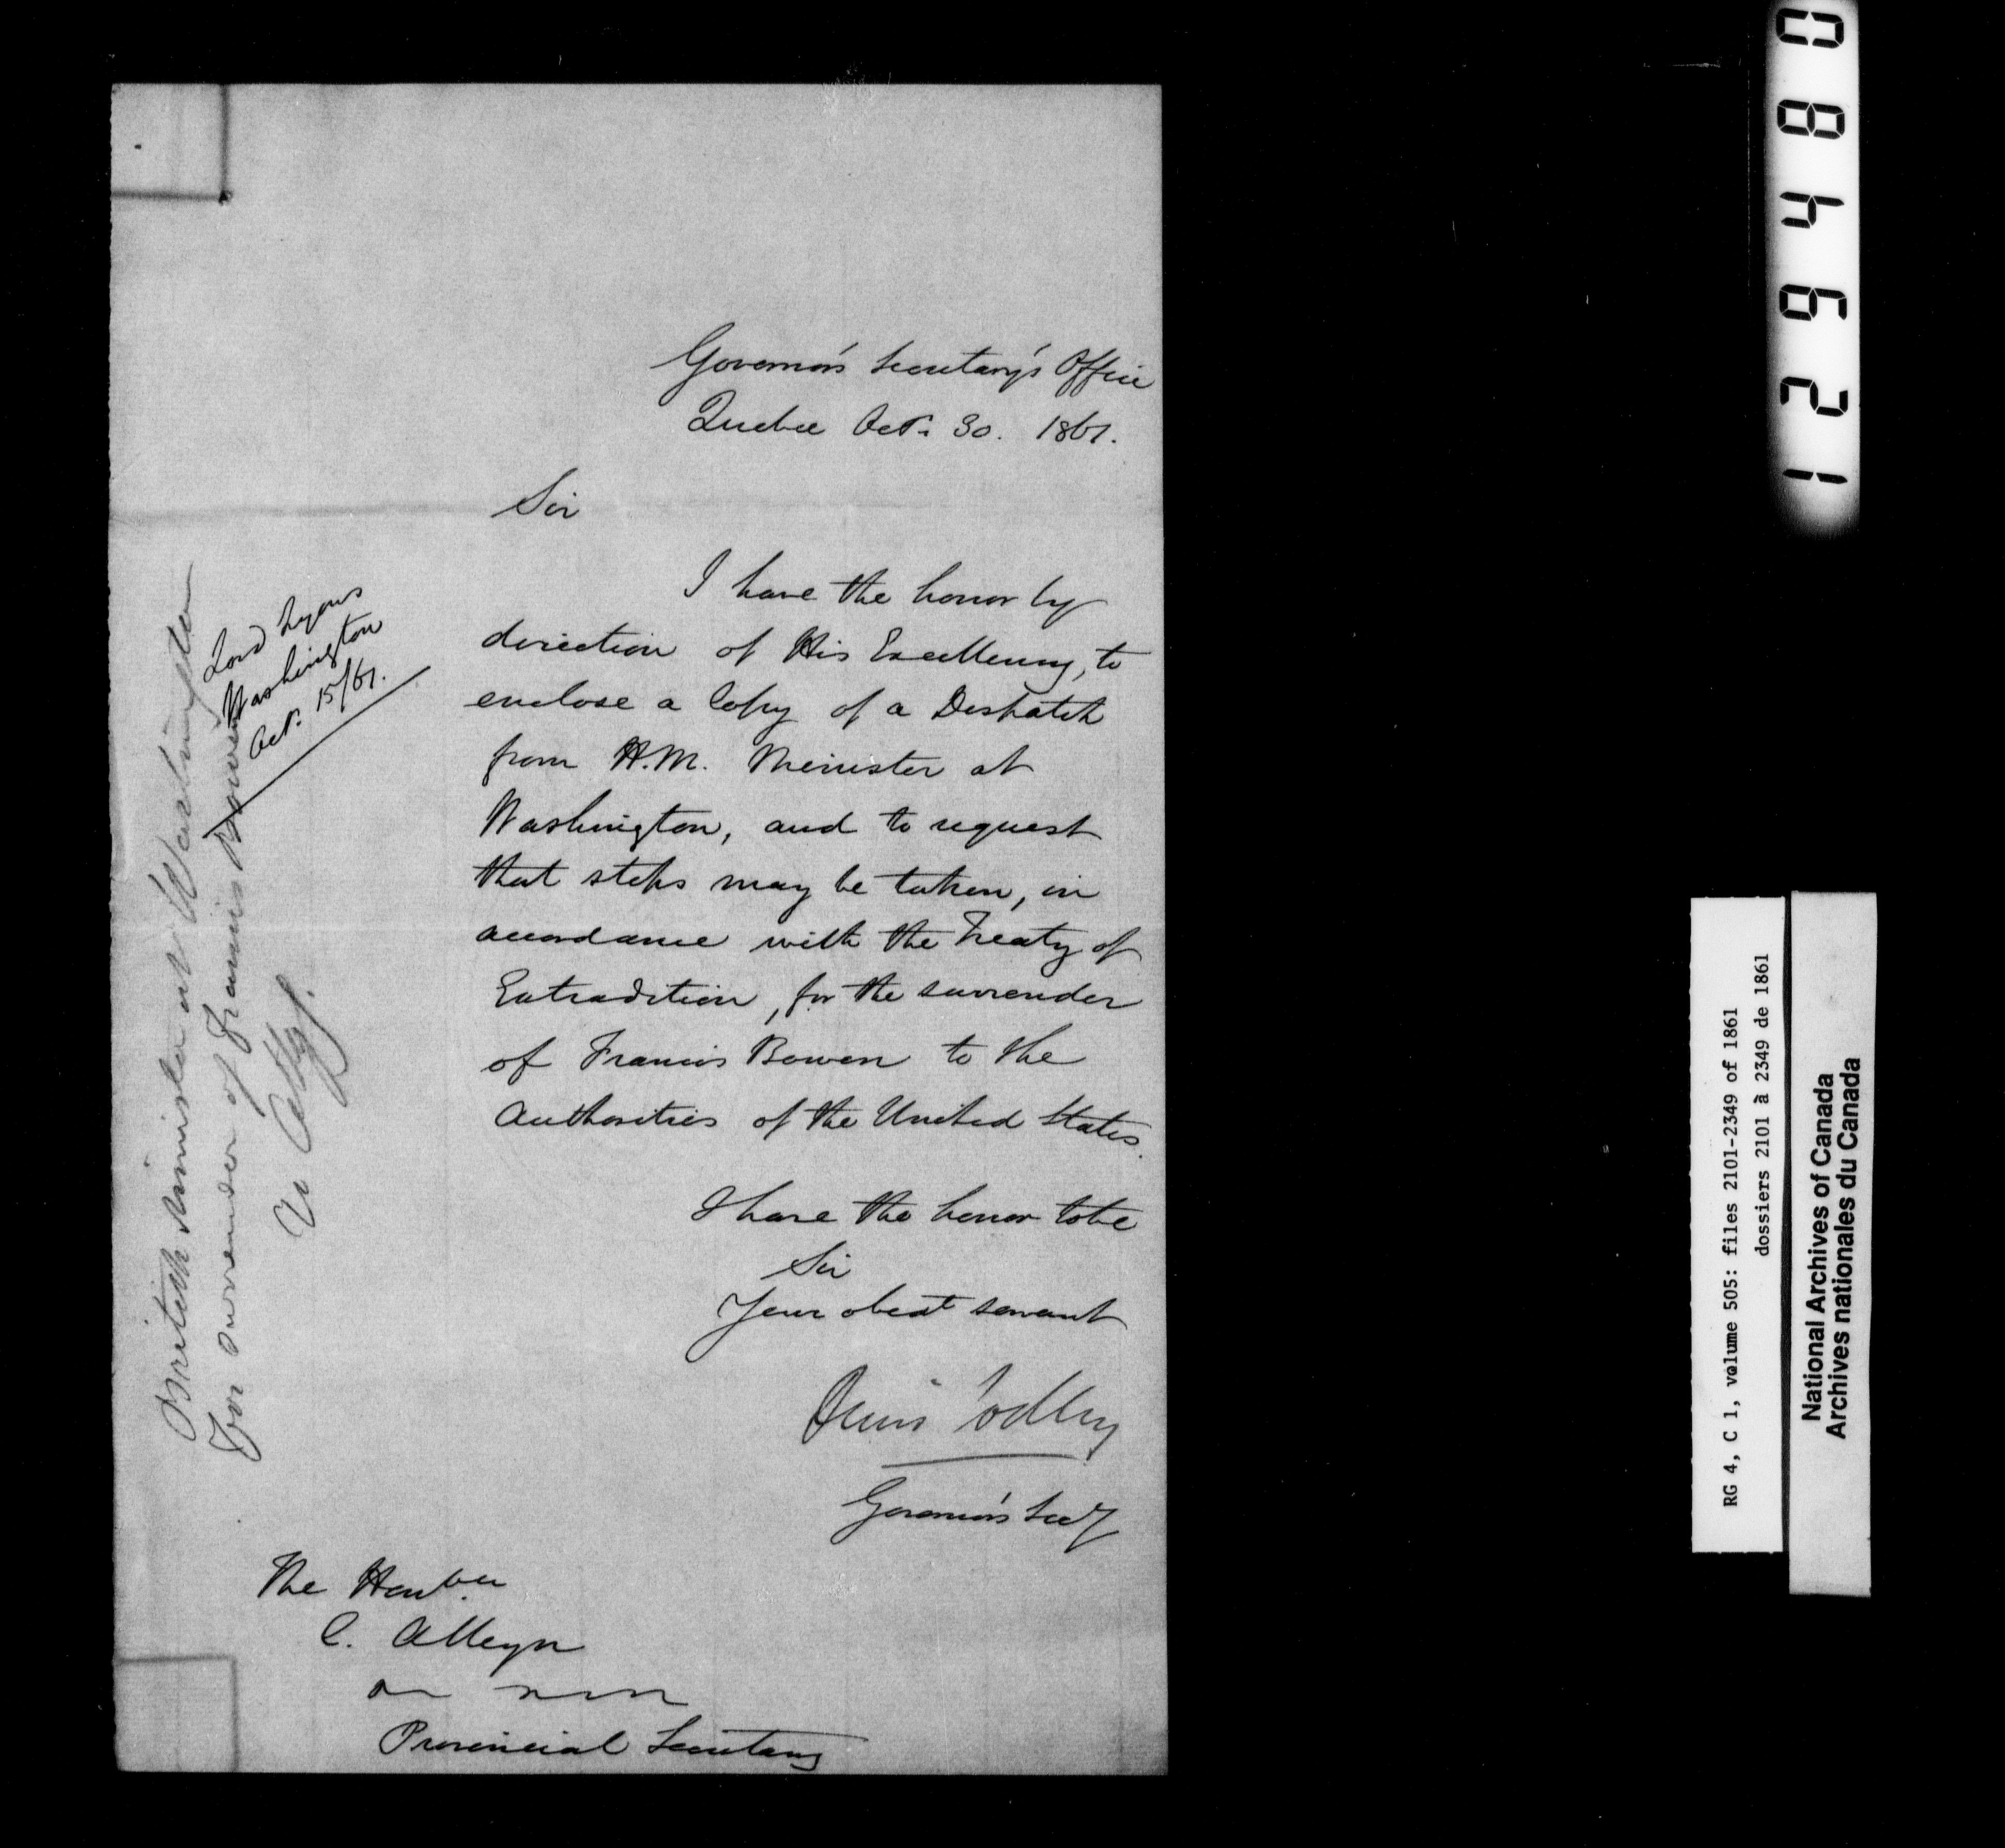 Governor's Secretary's Office
Quebec Oct. 30. 1861.
Sir
I have the honor by
direction of His Excellency, to
enclose a Copy of a Despatch
from H.M. Minister at
Washington, and to request
that steps may be taken, in
accordance with the Treaty of
Extradition, for the surrender
of Francis Bowen to the
Authorities of the United States.
I have the honor to be
Sir
Your obedt servant
Denis Godley
Governor's Secy
The Honble
C. Alleyn
Provincial Secretary
Lord Lyons
Washington
Oct. 15/61.
British Minister at Washington
For surrender of Francis Bowen
129480
RG 4, C 1, volume 505: files 2101-2349 of 1861
dossiers 2101 à 2349 de 1861
National Archives of Canada
Archives nationales du Canada